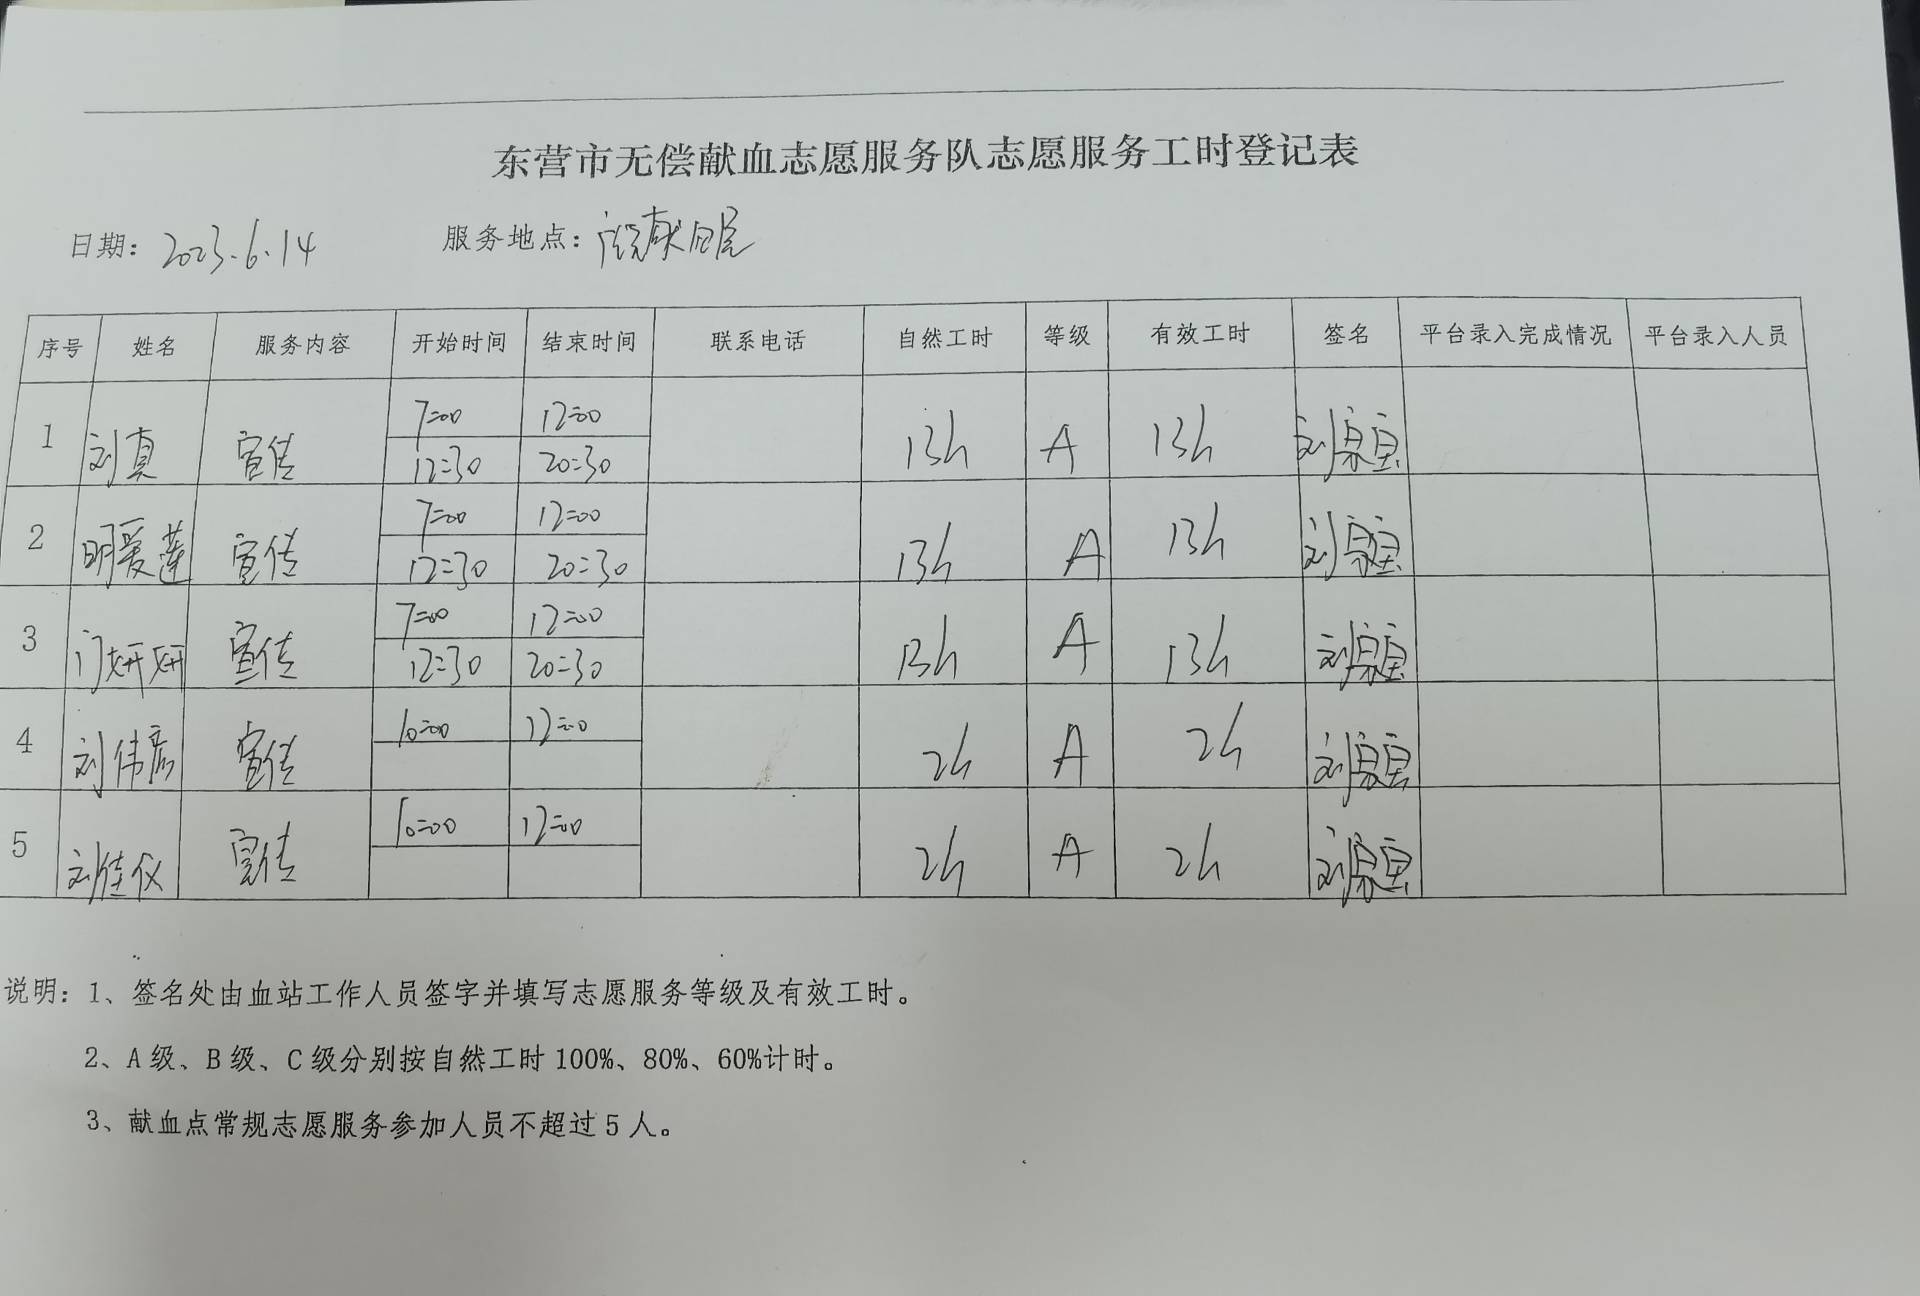 东营市无偿献血志愿服务队志愿服务工时登记表
日期：2023.6.14 服务地点：广饶献血屋
序号 姓名 服务内容 开始时间 结束时间 联系电话 自然工时 等级 有效工时 签名 平台录入完成情况 平台录入人员
1 刘真 宣传 7:00 12:00 13h A 13h
12:30 20:30
2 明爱莲 宣传 7:00 12:00 13h A 13h
12:30 20:30
3 门妍妍 宣传 7:00 12:00 13h A 13h
12:30 20:30
4 刘伟彦 宣传 10:00 12:00 2h A 2h
5 刘佳仪 宣传 10:00 12:00 2h A 2h
说明：1、签名处由血站工作人员签字并填写志愿服务等级及有效工时。
2、A级、B级、C级分别按自然工时100%、80%、60%计时。
3、献血点常规志愿服务参加人员不超过5人。